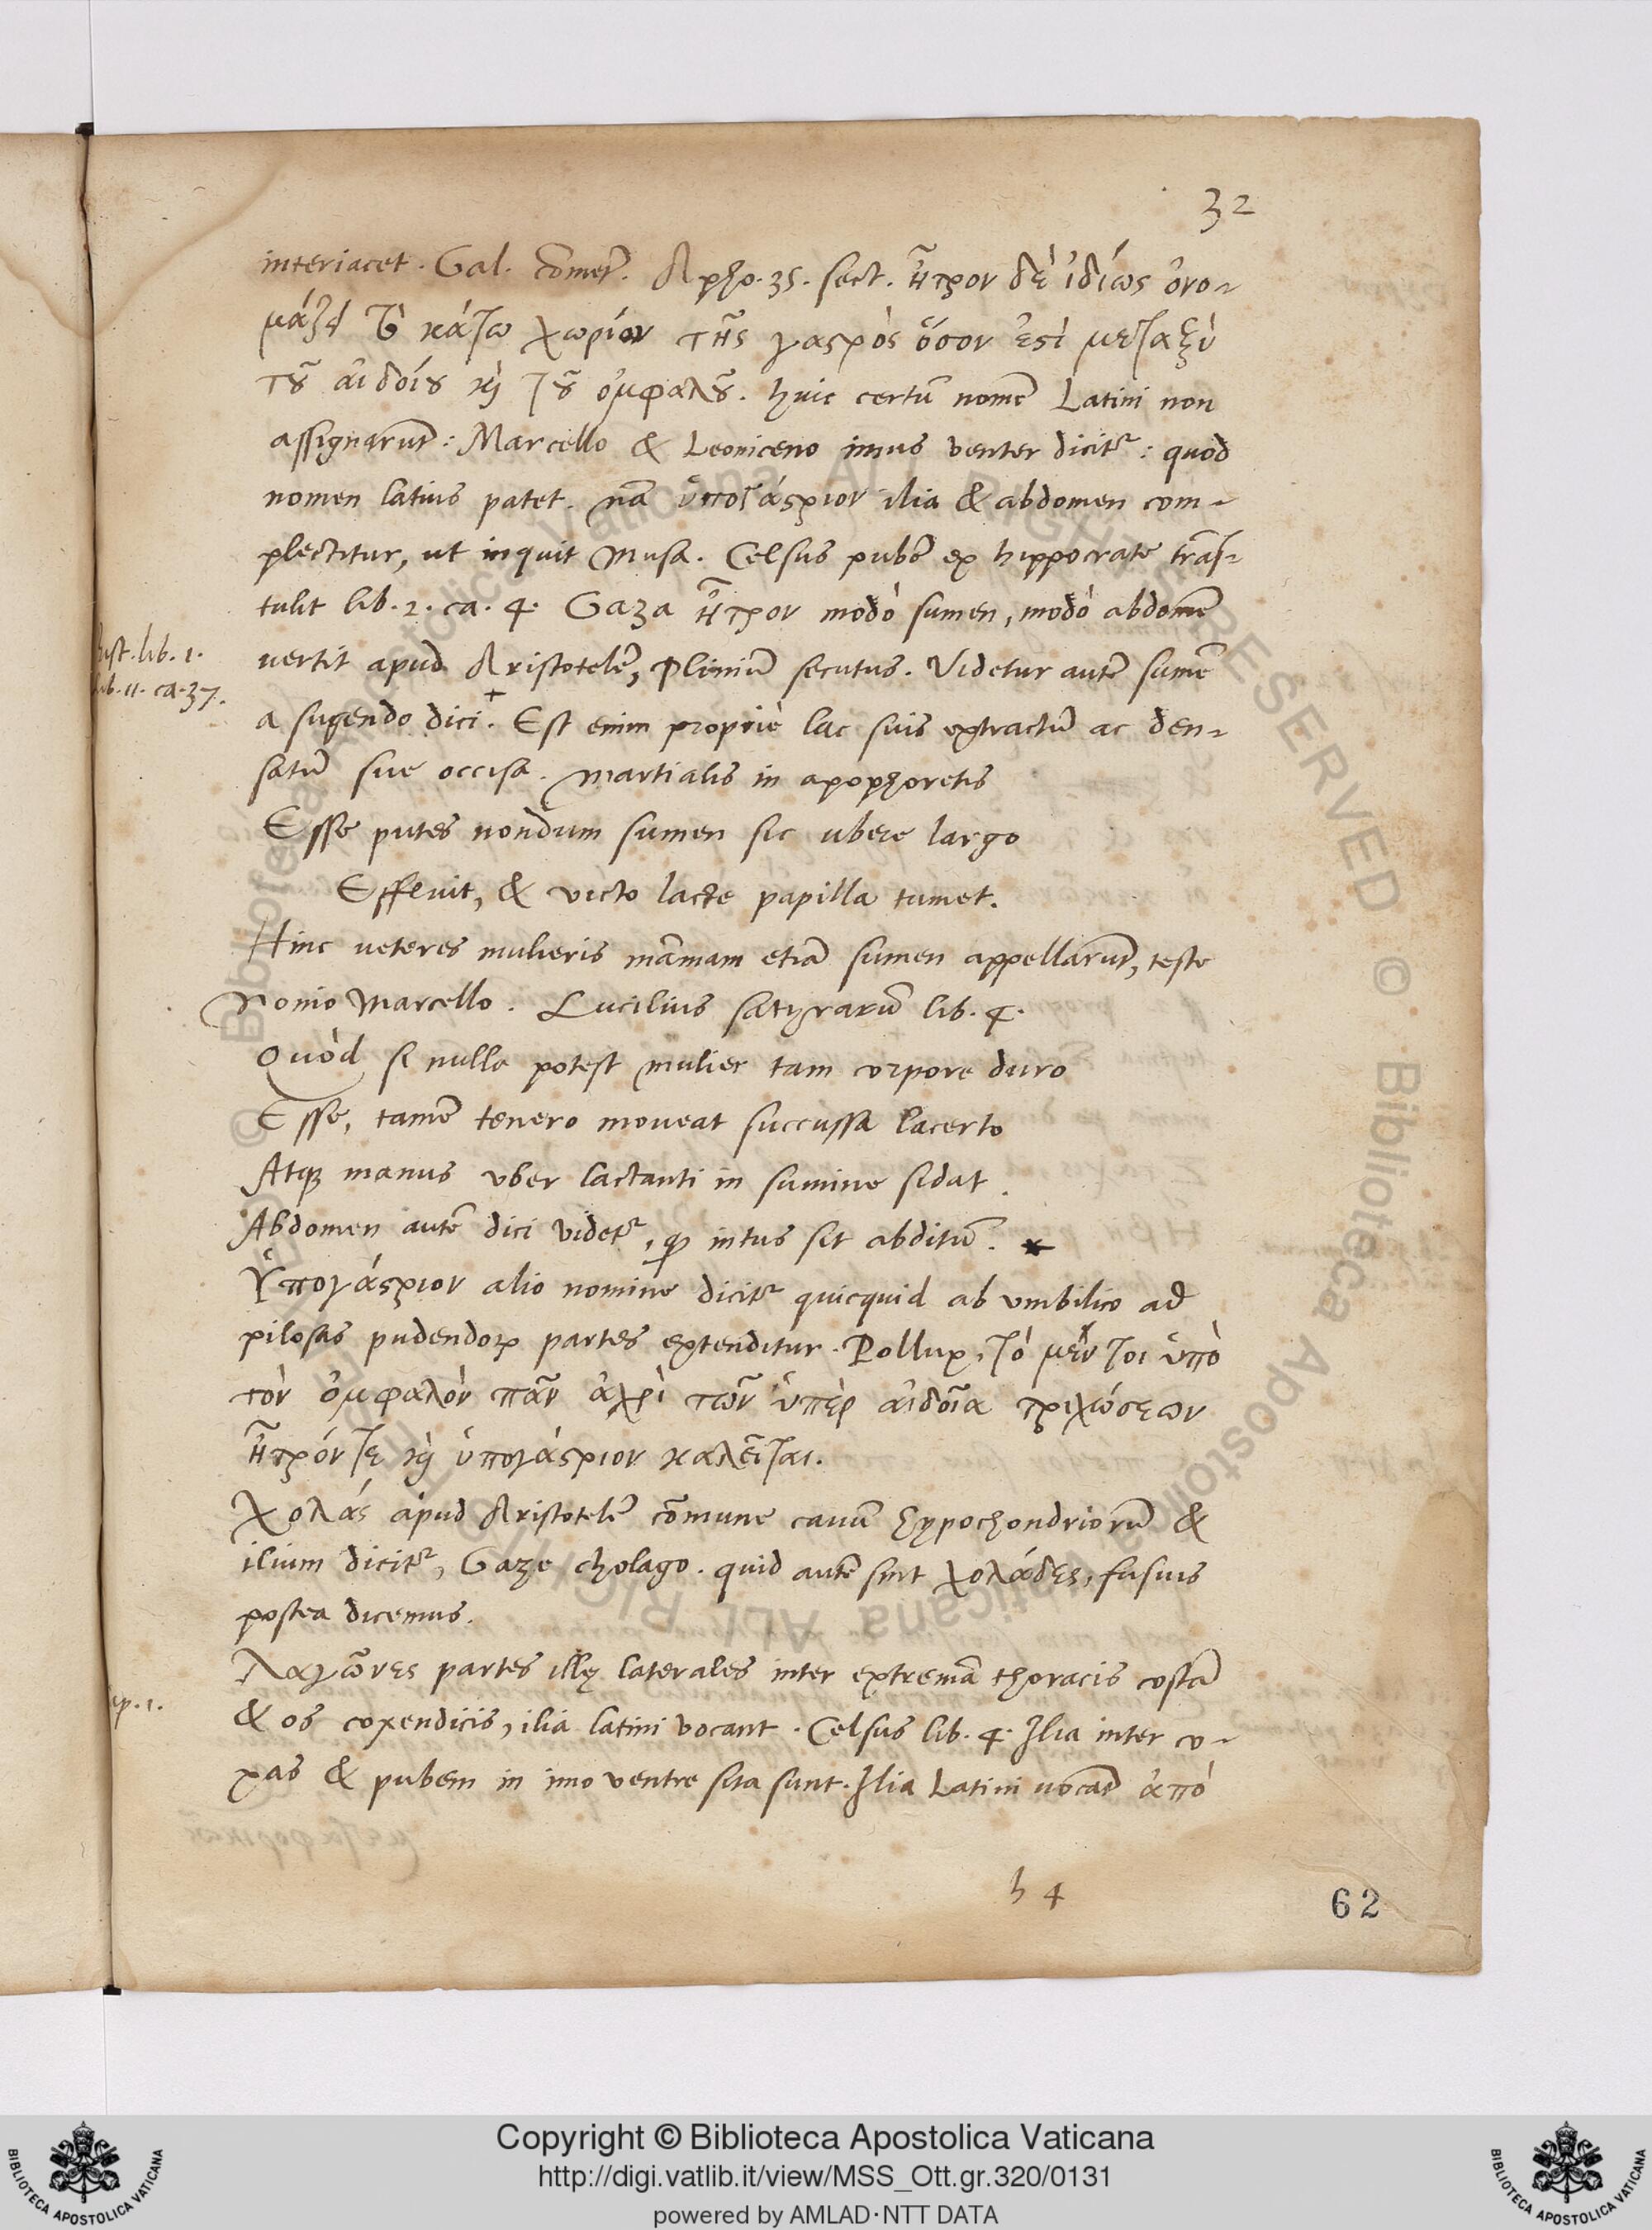 32
interiacet. Gal. com̃ẽt. Apho. 35. sect. ἦτρον δὲ ἰδίως ὀνο-
μάζει τὸ κάτω χωρίον τῆς γαςρὸς ὅσον ἐςὶ μεταξὺ
τȣ͂ αἰδοίȣ ϗ̀ τȣ͂ ὀμφαλȣ͂. huic certũ nomẽ Latini non
assignarũt: Marcello & Leoniceno imus venter dicit᷑: quod
nomen latius patet. nã ὑπογάςριον ilia & abdomen com-
plectitur, ut inquit Musa. Celsus pubẽ ex hippocrate trãs-
tulit lib. 2. ca. 4. Gaza ἦτρον modò sumen, modò abdomẽ
hist. lib. 1.
vertit apud Aristotelẽ, Pliniũ secutus. Videtur autẽ sumẽ
lib. 11. ca. 37.
a sugendo dici. + Est enim propriè lac suis extractũ ac den-
satũ sue occisa. Martialis in apophoretis
Esse putes nondum sumen sic ubere largo
Effluit, & victo lacte papilla tumet.
Hinc ueteres mulieris mãmam etiã sumen appellarũt, teste
Nonio Marcello. Lucilius satyrarũ lib. 4.
Quòd si nulla potest mulier tam corpore duro
Esse, tamẽ tenero moueat succussa lacerto
Atq; manus vber lactanti in sumine sidat.
Abdomen autẽ dici videt᷑, ꝙ intus sit abditũ. *
Ὑπογάςριον alio nomine dicit᷑ quicquid ab vmbilico ad
pilosas pudendoꝝ partes extenditur. Pollux, τὸ μέν τοι ὑπὸ
τὸν ὀμφαλὸν πᾶν ἀχρὶ τῶν ὑπὲρ αἰδοῖα τριχώσεων
ἦτρόν τε ϗ̀ ὑπογάςριον καλεῖται.
Χολάς apud Aristotelẽ cõmune cauũ hypochondriorũ &
ilium dicit᷑, Gaze cholago. quid autẽ sint χολάδες, fusius
postea dicemus.
Λαγῶνες partes illę laterales inter extremã thoracis costã
ap. 1.
& os coxendicis, ilia latini vocant. Celsus lib. 4. Ilia inter co-
xas & pubem in imo ventre sita sunt. Ilia Latini uocãt ἀπὸ
h 4
62
© Biblioteca Apostolica Vaticana ALL RIGHTS RESERVED
© Biblioteca Apostolica Vaticana ALL RIGHTS RESERVED
Copyright © Biblioteca Apostolica Vaticana
http://digi.vatlib.it/view/MSS_Ott.gr.320/0131
powered by AMLAD·NTT DATA
BIBLIOTECA APOSTOLICA VATICANA
BIBLIOTECA APOSTOLICA VATICANA